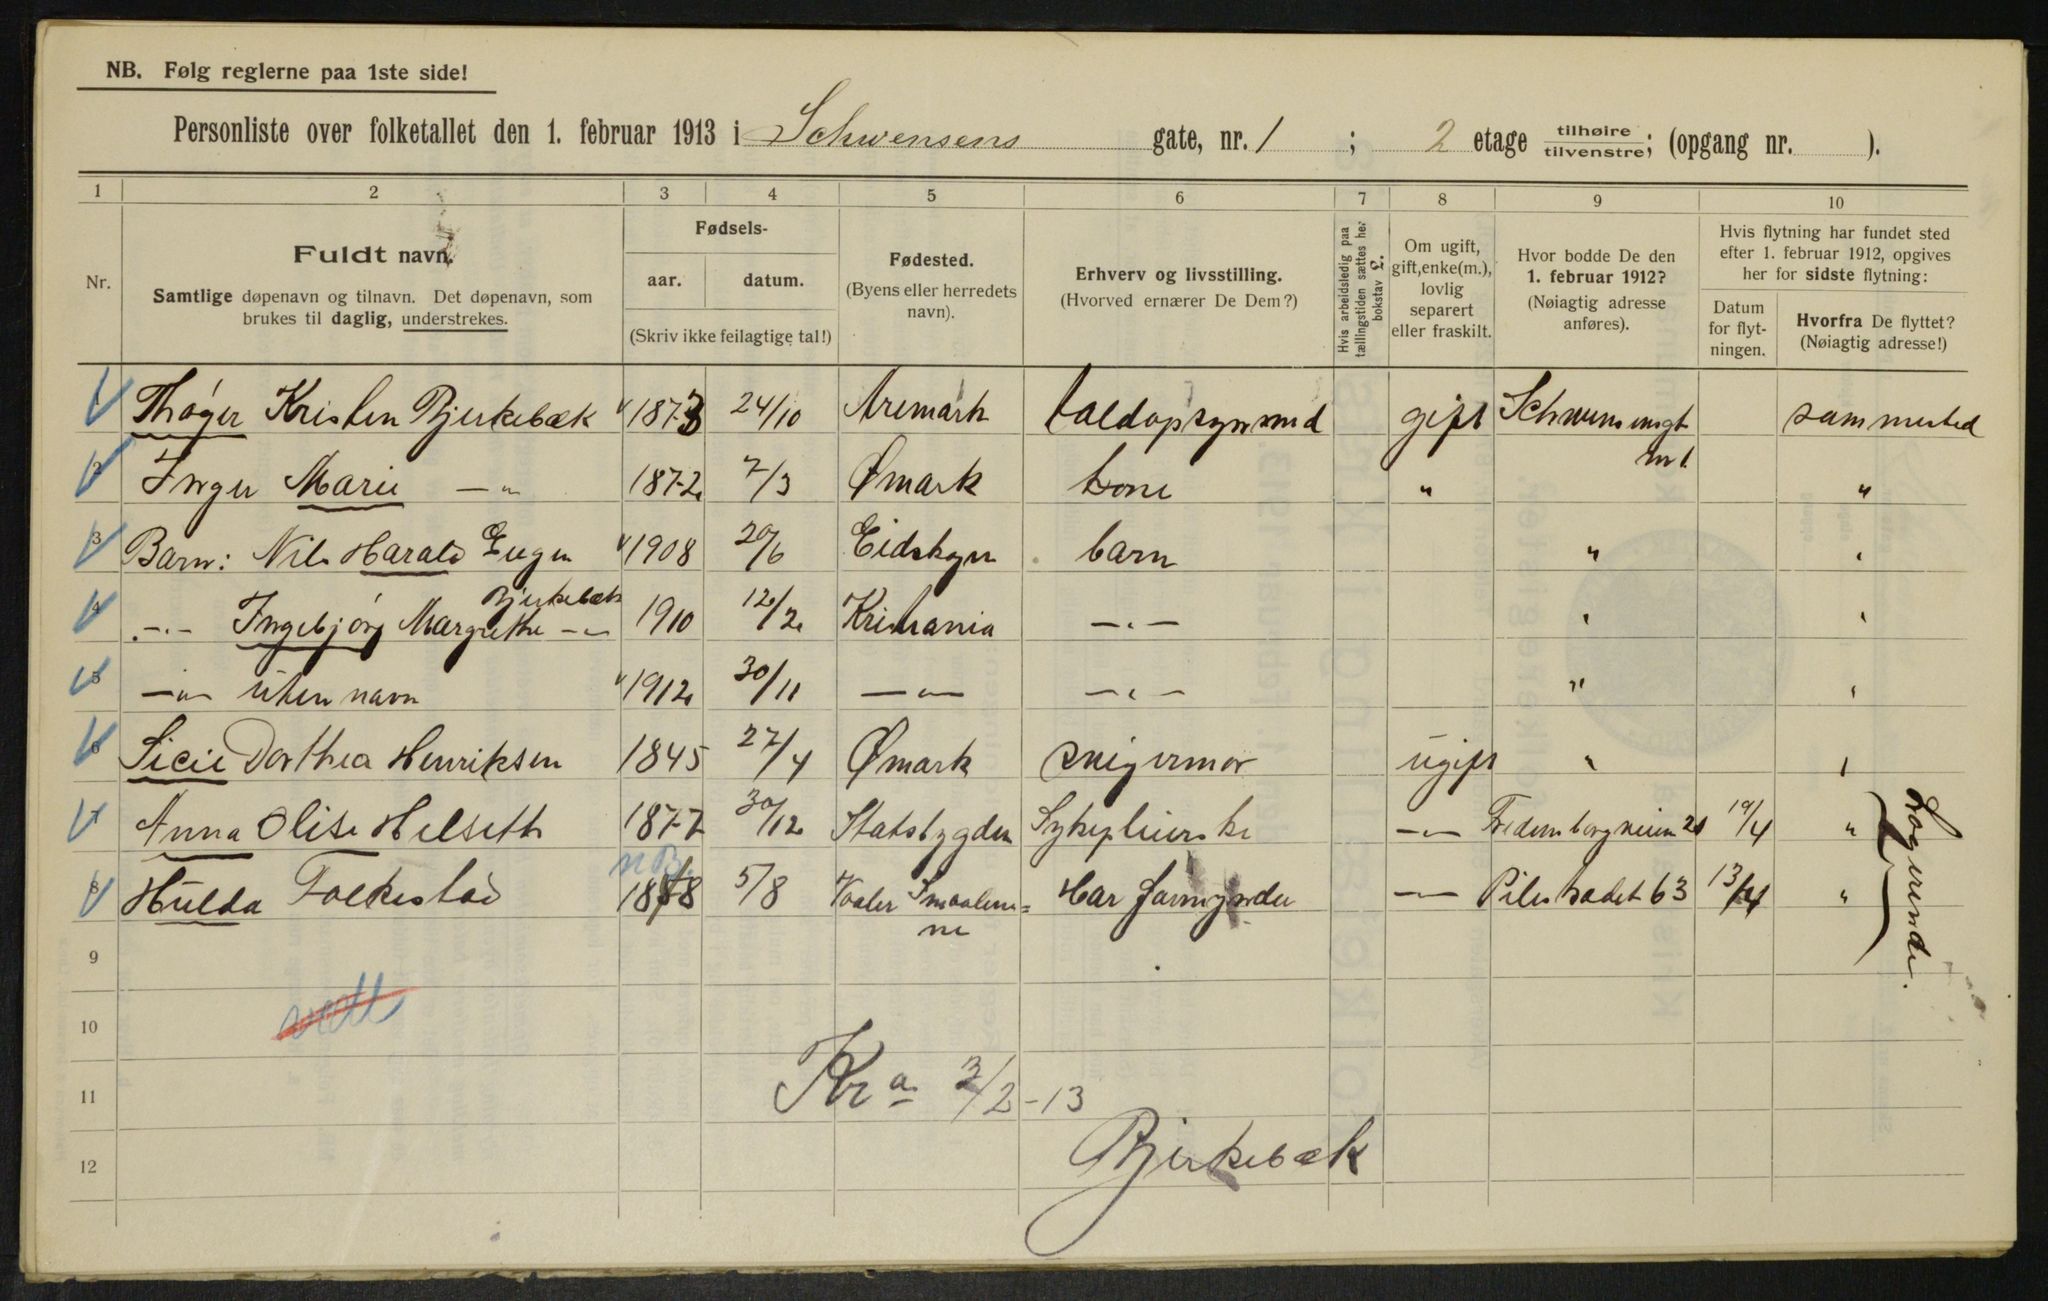 NB. Følg reglerne paa 1ste side!
Personliste over folketallet den 1. februar 1913 i Schwensens gate, nr. 1 ; 2 etage tilhøire tilvenstre; (opgang nr. ).
1 2 3 4 5 6 7 8 9 10
Nr.
Fuldt navn.
Samtlige døpenavn og tilnavn. Det døpenavn, som
brukes til daglig, understrekes.
Fødsels-
aar. datum.
(Skriv ikke feilagtige tal!)
Fødested.
(Byens eller herredets
navn).
Erhverv og livsstilling.
(Hvorved ernærer De Dem?)
Hvis arbeidsledig paa
tællingstiden sættes her
bokstav L.
Om ugift,
gift, enke(m.),
lovlig
separert
eller fraskilt.
Hvor bodde De den
1. februar 1912?
(Nøiagtig adresse
anføres).
Hvis flytning har fundet sted
efter 1. februar 1912, opgives
her for sidste flytning:
Datum
for flyt-
ningen.
Hvorfra De flyttet?
(Nøiagtig adresse!)
1 Thøger Kristen Bjerkebæk 1873 24/10 Aremark toldopsynsmd gift Schwensensgt sammested
nr 1
2 Inger Marie —"— 1872 7/3 Ømark kone " "
3 Barn: Nils Harald Eugen 1908 20/6 Eidskogn barn " "
Bjerkebæk
4 —"— Ingebjørg Margrethe —"— 1910 12/2 Kristiania —"— " "
5 —"— uten navn 1912 30/11 —"— —"— " "
6 Sicie Dorthea Henriksen 1845 27/4 Ømark svigermor ugift " "
7 Anna Olise Helseth 1877 30/12 Statsbygden Sykepleierske —"— Fredensborgveien 19/4 "
NB.
8 Hulda Folkestad 1888 5/8 Vaaler Smaalene= Har formynder —"— Pilestrædet 63 13/4 "
ne
Logerende.
9
10
11
12
Kra 3/2-13
Bjerkebæk